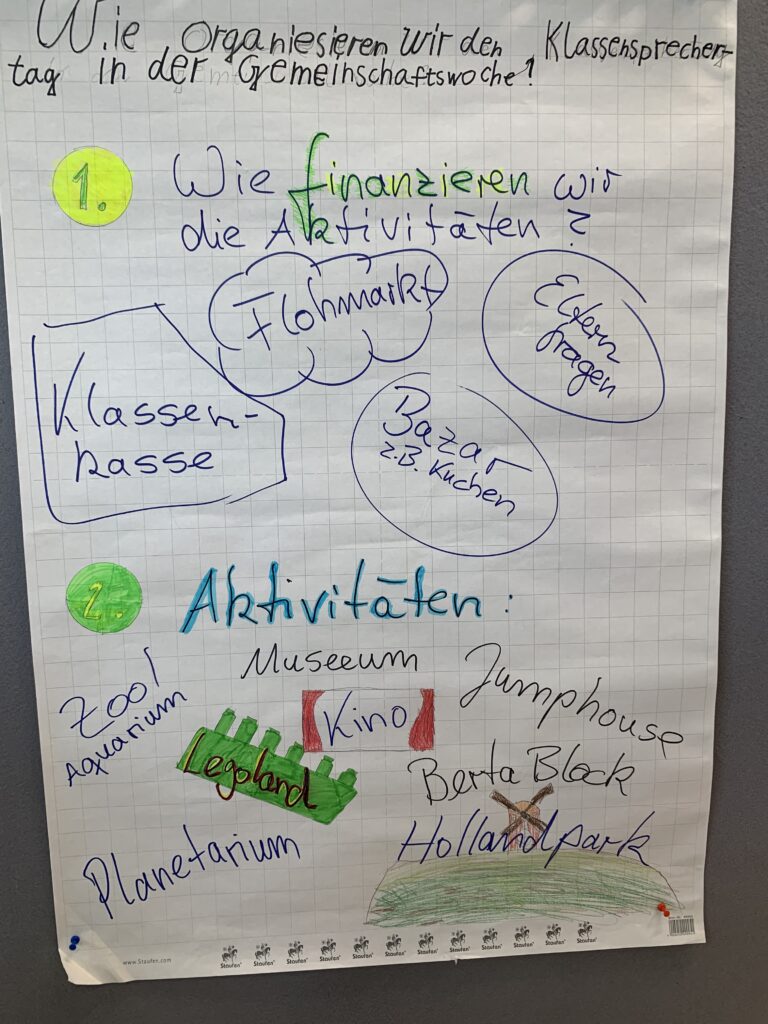 Wie Organiesieren wir den Klassensprecher-
tag in der Gemeinschaftswoche?
1. Wie finanzieren wir
die Aktivitäten?
Flohmarkt
Eltern
fragen
Klassen-
kasse
Bazar
z.B. Kuchen
2. Aktivitäten:
Museeum
Zoo/
Aquarium
Kino
Jumphouse
Legoland
Berta Block
Planetarium
Hollandpark
www.Staufen.com
Staufen Staufen Staufen Staufen Staufen Staufen Staufen Staufen Staufen Staufen Staufen Staufen